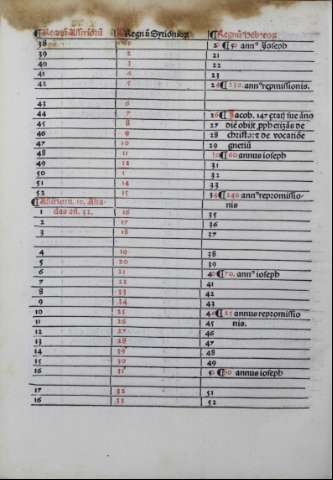 ¶Regnũ Assiriorũ ¶Regnũ Sytioniorũ ¶Regnũ Hebreorũ
38 1 20 ¶50 annꝰ Joseph
39 2 21
40 3 22
41 4 23
42 5 24 ¶130. annꝰ repromissionis.
43 6
44 7 26 ¶Jacob. 147 etatis sue ãno
45 8 27 die obijt ꝓphetizãs de
46 9 28 christo: et de vocatiõe
47 10 29 gentiũ
48 11 30 ¶60 annus ioseph
49 12 31
50 13 32
51 14 33
52 15 34 ¶140 annꝰ repromissio
¶Assiriorũ. 10. nis
1 das añ. 32. 16 35
2 17 36
3 18 37
4 19 38
5 20 39
6 21 40 ¶70. annꝰ ioseph
7 22 41
8 23 42
9 24 43
10 25 44 ¶ annus repromissio
11 26 45 nis.
12 27 46
13 28 47
14 29 48
15 30 49
16 31 50 ¶80 annus ioseph
17 32 51
18 33 52